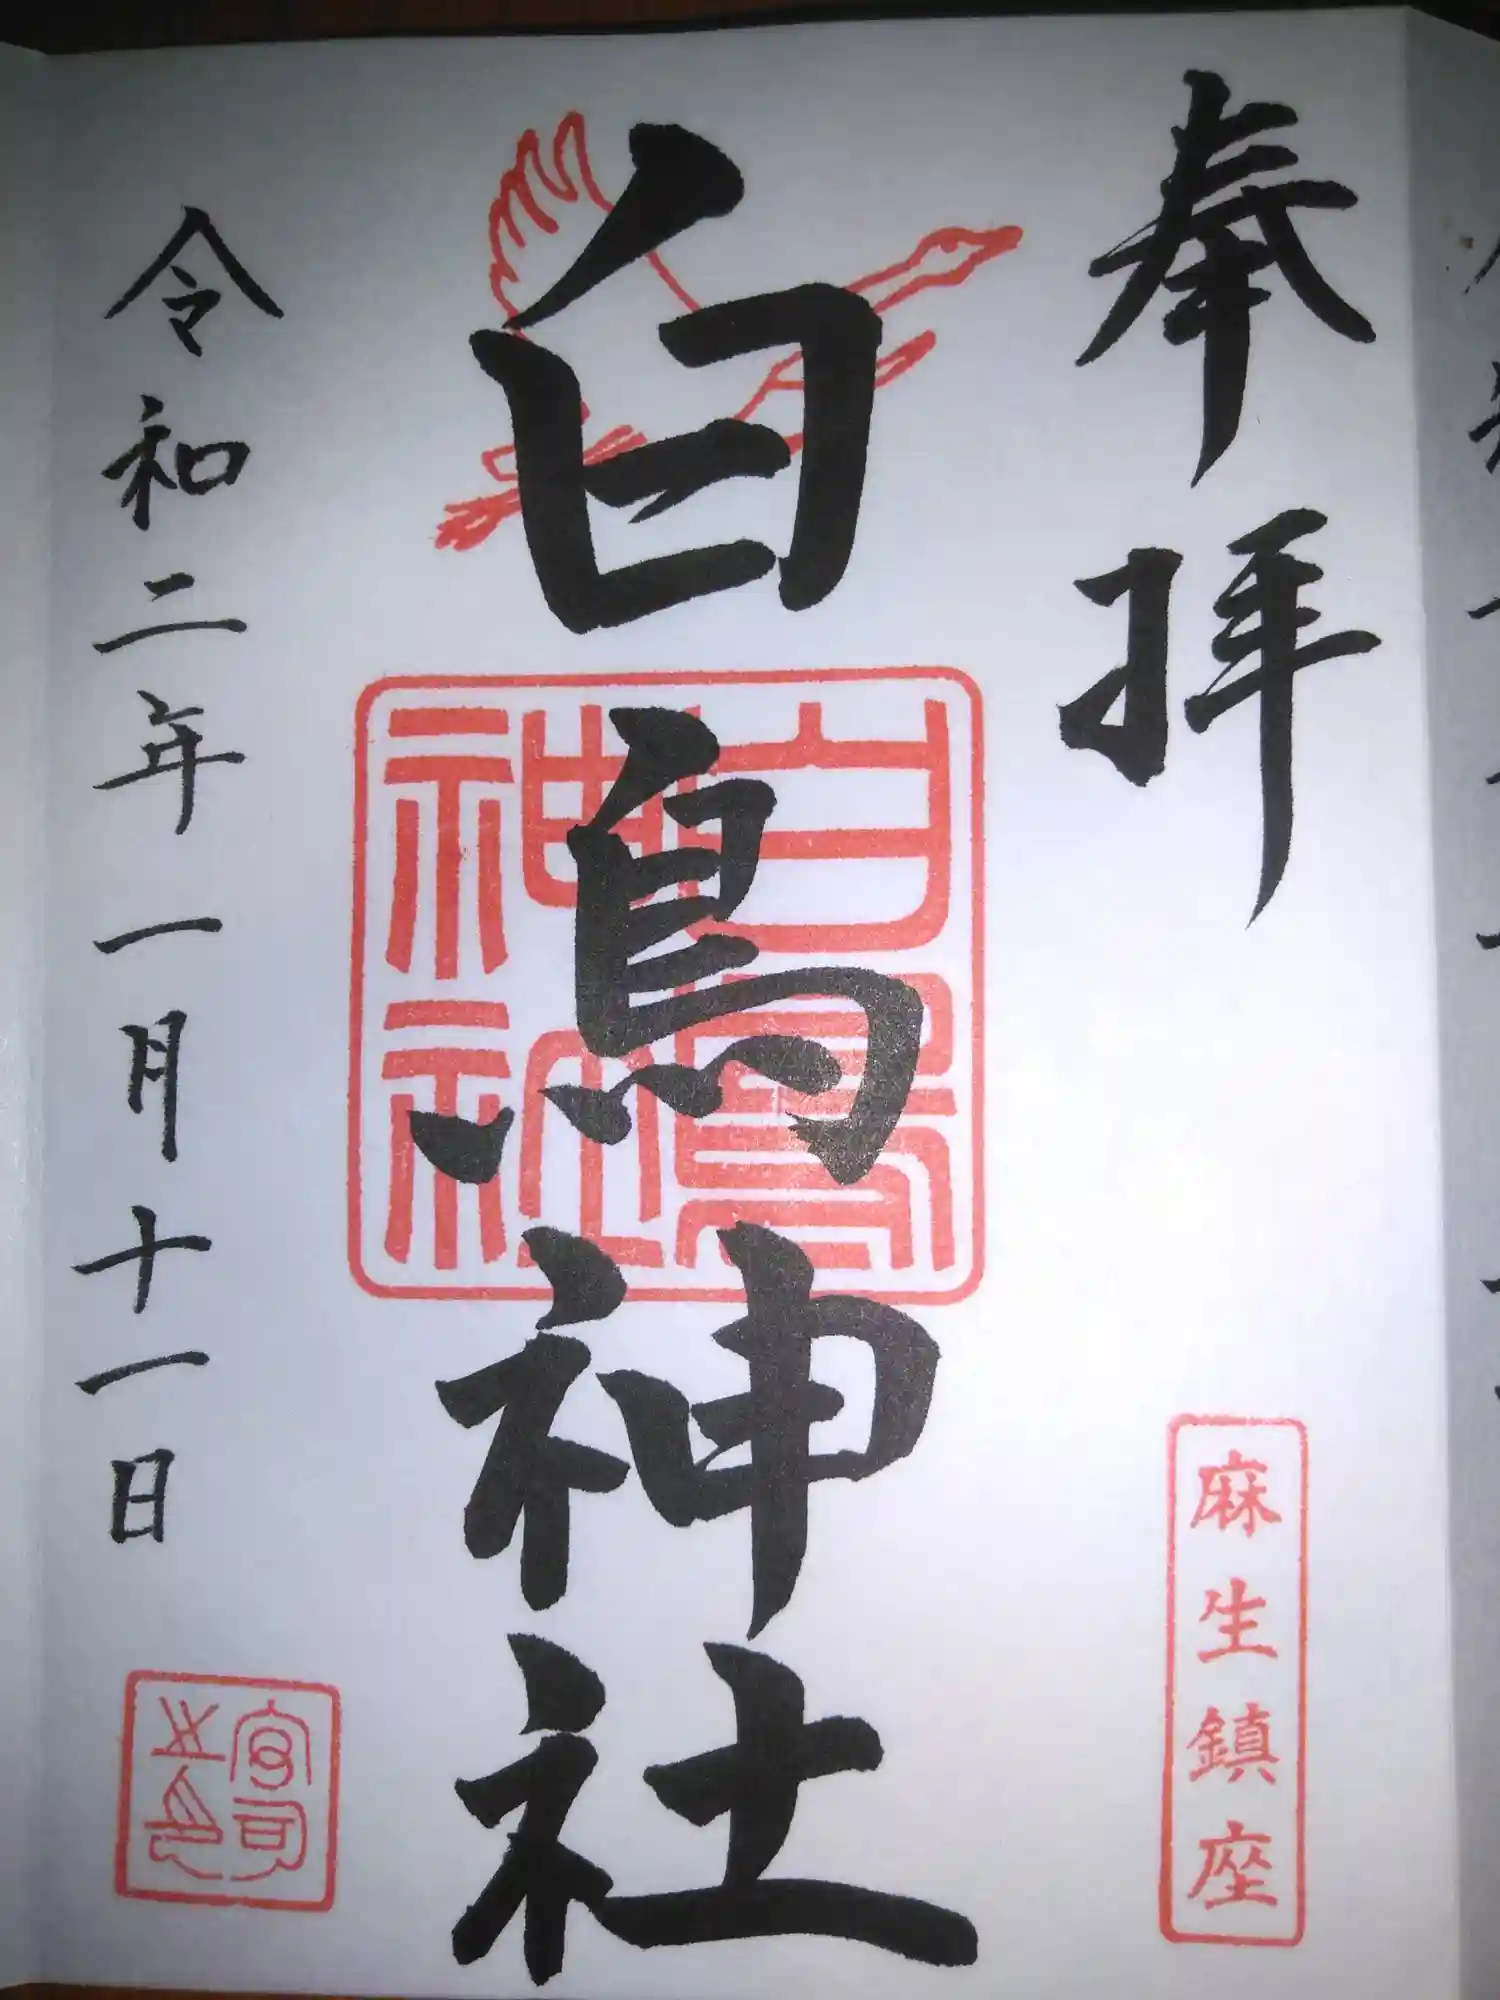 奉拝
麻生鎮座
白鳥神社
白鳥
神社
令和二年一月十一日
宮司
之印